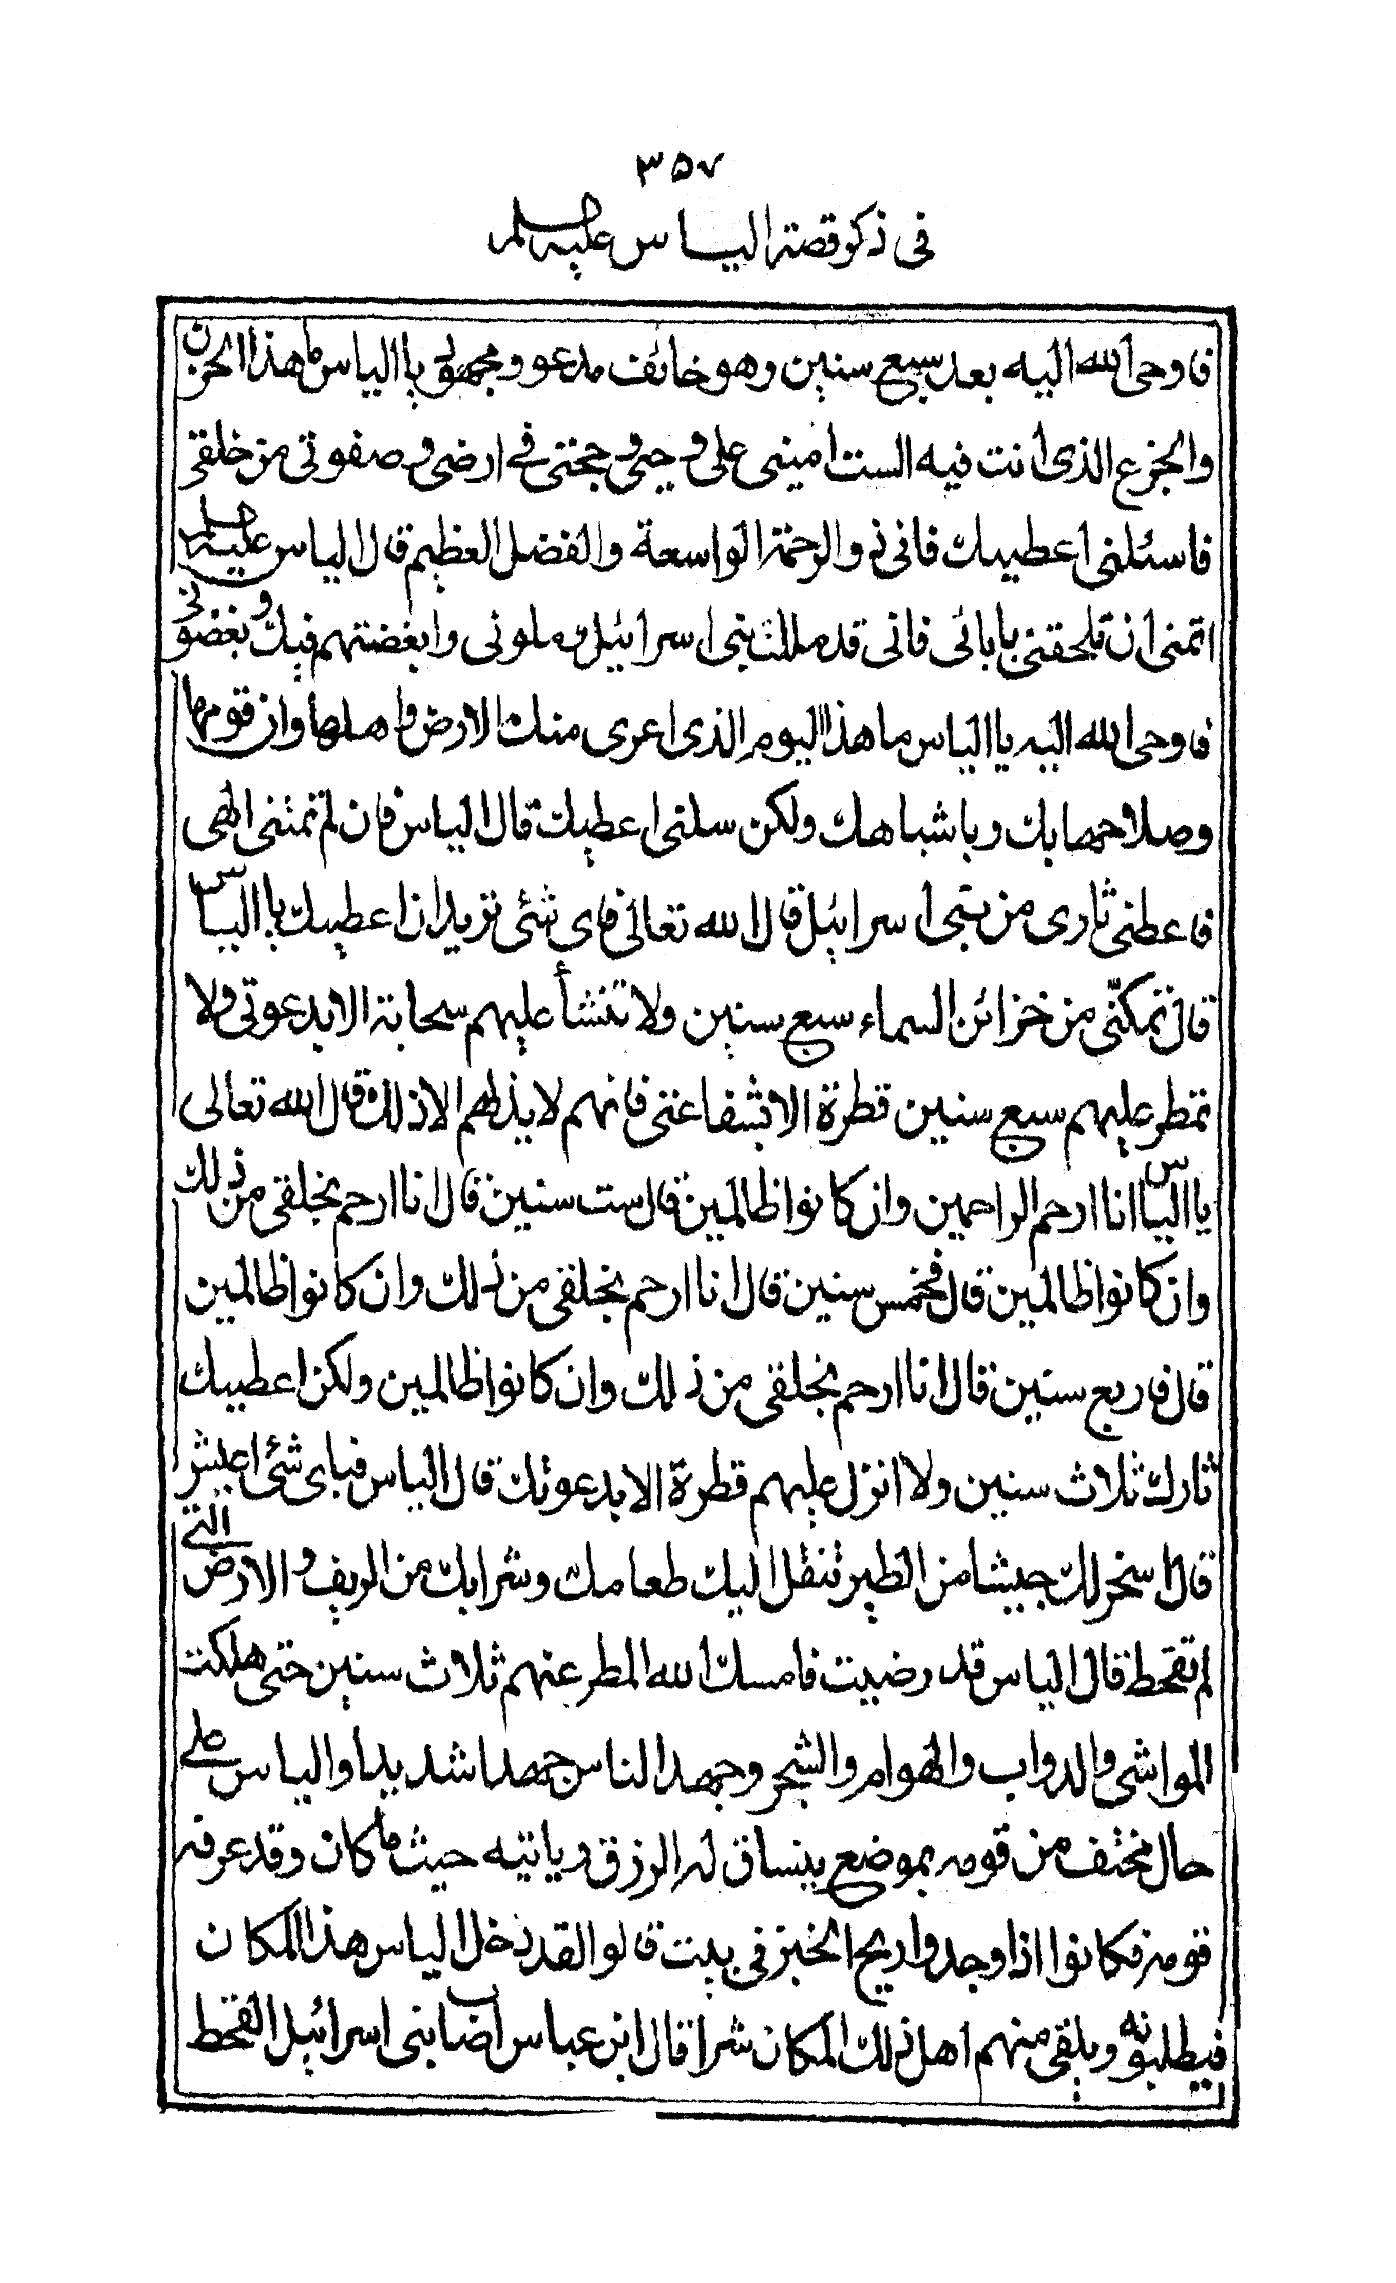 ۳۵۷
فى ذكر قصة الياس عليه السلم
فاوحى الله اليه بعد سبع سنين وهو خائف مدعور ومجهود يا الياس ما هذا الحزن
والجزع الذى انت فيه الست امينى على وحيى وحجتى فى ارضى وصفوتى من خلقى
فاسئلنى اعطيك فانى ذو الرحمة الواسعة والفضل العظيم قال الياس عليه السلم
اتمنى ان تلحقنى باٰبائى فانى قد مللت بنى اسرائيل وملونى وابغضتهم فيك وبغضونى
فاوحى الله اليه يا الياس ما هذا اليوم الذى اعرى منك الارض واهلها وان قومها
وصلاحها بك وباشباهك ولكن سلنى اعطيك قال الياس فان لم تمتنى الهى
فاعطنى ثارى من بنى اسرائيل قال الله تعالى فاى شئ تريد ان اعطيك يا الياس
قال تمكنّى من خزائن السماء سبع سنين ولا تنشأ عليهم سحابة الا بدعوتى ولا
تمطر عليهم سبع سنين قطرة الا بشفاعتى فانهم لا يذلهم الا ذلك قال الله تعالى
يا الياس انا ارحم الراحمين وان كانوا ظالمين قال ست سنين قال انا ارحم بخلقى من ذلك
وان كانوا ظالمين قال فخمس سنين قال انا ارحم بخلقى من ذلك وان كانوا ظالمين
قال فاربع سنين قال انا ارحم بخلقى من ذلك وان كانوا ظالمين ولكن اعطيك
ثارك ثلاث سنين ولا انزل عليهم قطرة الا بدعوتك قال الياس فباى شئ اعيش
قال اسخر لك جيشا من الطير تنقل اليك طعامك وشرابك من الريف والارض التى
لم تقحط قال الياس قد رضيت فامسك الله المطر عنهم ثلاث سنين حتى هلكت
المواشى والدواب والهوام والشجر وجهد الناس جهدا شديدا والياس على
حال مختف من قومه بموضع ينساق له الرزق وياتيه حيث ما كان وقد عرفه
قومه فكانوا اذا وجدوا ريح الخبز فى بيت قالوا لقد دخل الياس هذا المكان
فيطلبونه ويلقى منهم اهل ذلك المكان شرا قال ابن عباس اصاب بنى اسرائيل القحط